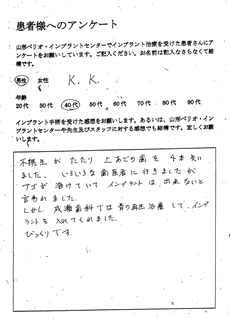 患者様へのアンケート
山形ペリオ・インプラントセンターでインプラント治療を受けた患者さんにア
ンケートをお願いしています。ご記入ください。お名前は記入なさらなくて結
構です。
男性 女性 K.K.
年齢
20代 30代 40代 50代 60代 70代 80代 90代
インプラント手術を受けた感想をお願いします。あるいは、山形ペリオ・イン
プラントセンターや先生及びスタッフに対する感想でも結構です。宜しくお願
いします。
不摂生が たたり 上あごの歯を 4本失い
ました。 いろいろな 歯医者に 行きましたが
アゴが 溶けていて インプラントは 出来ないと
言われました。
しかし 成瀬歯科では 骨の再生治療 して、イン
プラントを 入れてくれました。
びっくりです。